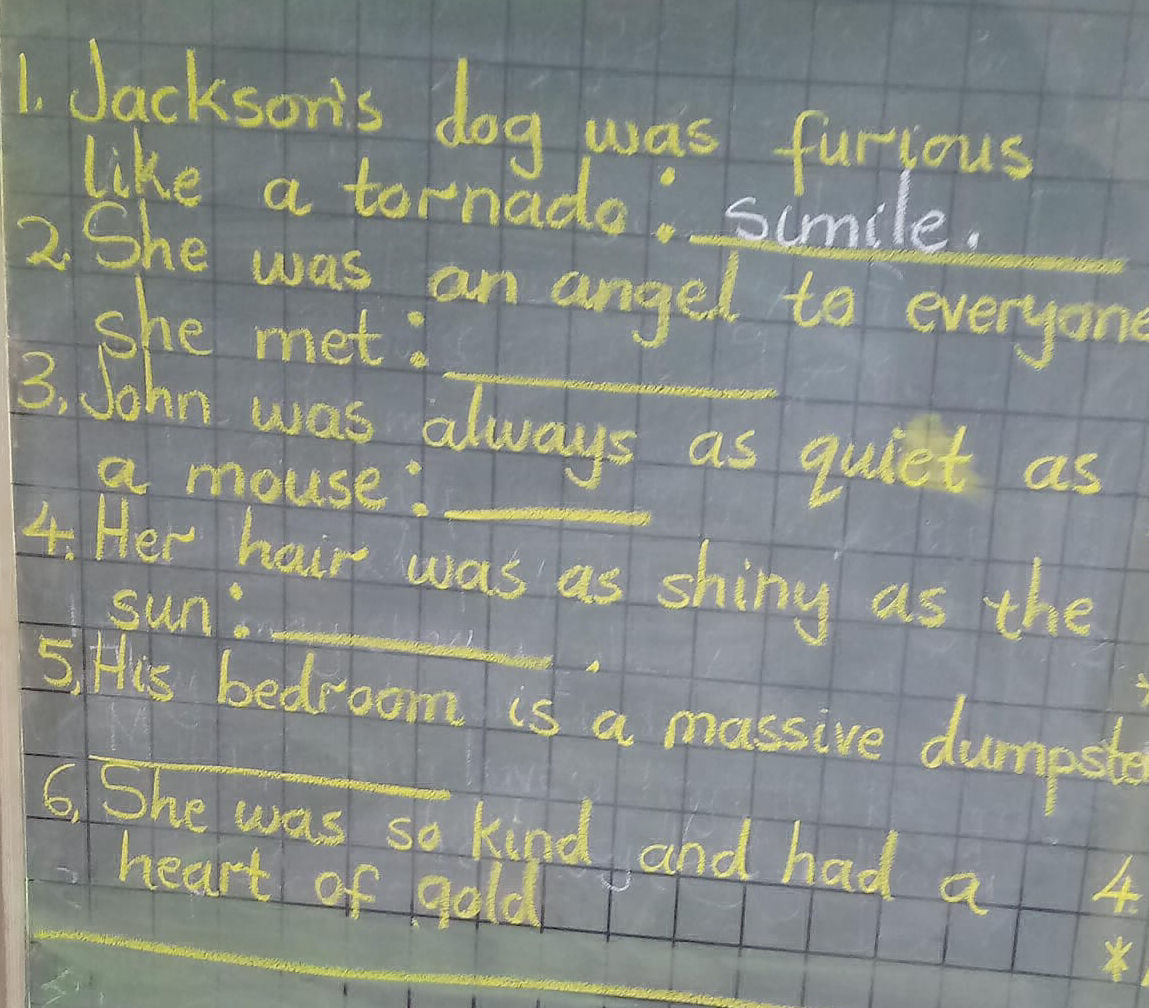 1. Jackson's dog was furious
like a tornado: simile.
2. She was an angel to everyone
she met:
3. John was always as quiet as
a mouse:
4. Her hair was as shiny as the
sun: .
5. His bedroom is a massive dumpste
6. She was so kind and had a
heart of gold
4.
*